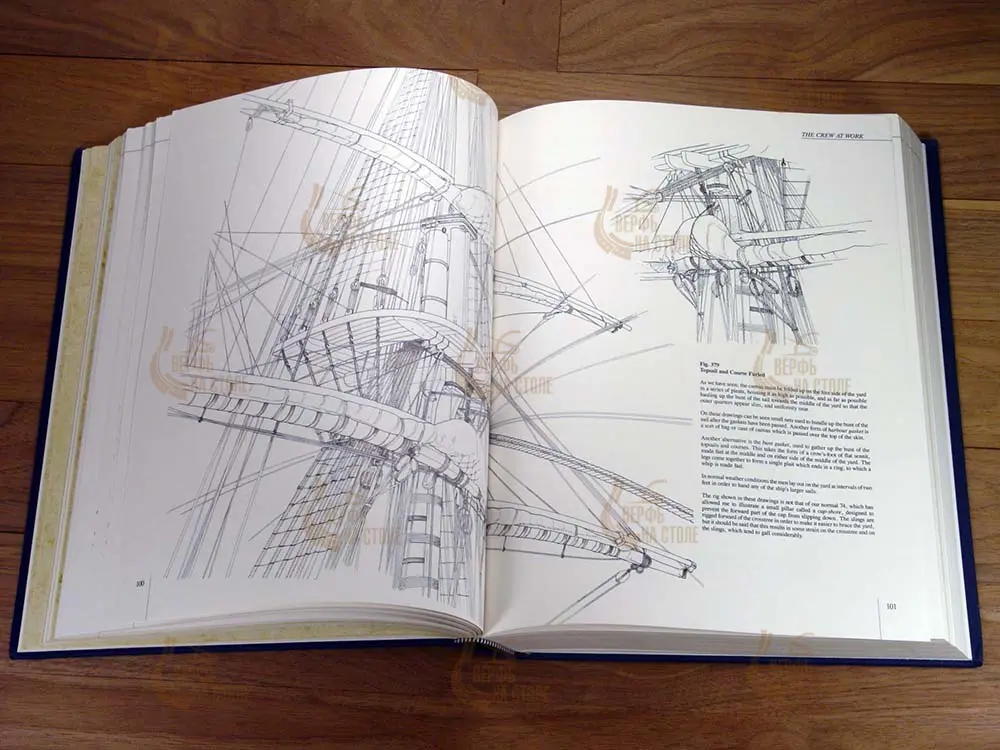 THE CREW AT WORK
Fig. 379
Topsail and Course Furled
As we have seen, the canvas must be folded up on the fore side of the yard
in a series of pleats, housing it as high as possible, and as far as possible
hauling up the bunt of the sail towards the middle of the yard so that the
outer quarters appear slim, and uniformly neat.
On these drawings can be seen small nets used to bundle up the bunt of the
sail after the gaskets have been passed. Another form of harbour gasket is
a sort of bag or case of canvas which is passed over the top of the skin.
Another alternative is the bunt gasket, used to gather up the bunt of the
topsails and courses. This takes the form of a crow's-foot of flat sennit,
made fast at the middle and on either side of the middle of the yard. The
legs come together to form a single plait which ends in a ring, to which a
whip is made fast.
In normal weather conditions the men lay out on the yard at intervals of two
feet in order to hand any of the ship's larger sails.
The rig shown in these drawings is not that of our normal 74, which has
allowed me to illustrate a small pillar called a cap-shore, designed to
prevent the forward part of the cap from slipping down. The slings are
rigged forward of the crosstree in order to make it easier to brace the yard,
but it should be said that this results in some strain on the crosstree and on
the slings, which tend to gall considerably.
100
101
ВЕРФЬ
НА СТОЛЕ